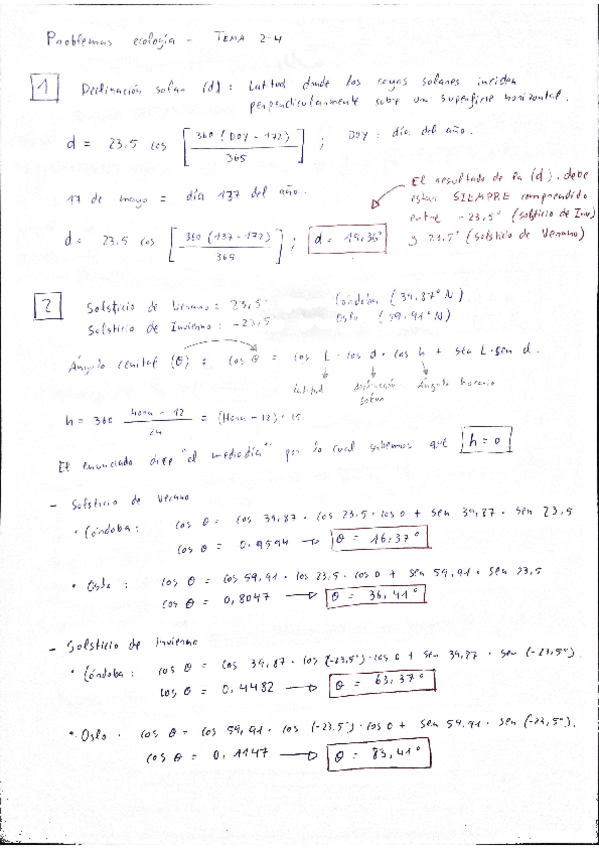 Problemas ecología - TEMA 2-4
1 Declinación solar (d) : Latitud donde los rayos solares inciden
perpendicularmente sobre un superficie horizontal.
d = 23.5 cos [ 360 (DOY - 172) / 365 ] ; DOY : día del año.
17 de mayo = día 137 del año.
El resultado de la (d). debe
estar SIEMPRE comprendido
entre -23,5° (solsticio de Inv)
y 23.5° (solsticio de Verano)
d = 23.5 cos [ 360 (137 - 172) / 365 ] ; d = 19,36°
2 Solsticio de Verano : 23,5° Córdoba (39.87° N)
Solsticio de Invierno : -23,5 Oslo (59.91° N)
Ángulo cenital (θ) : cos θ = cos L · cos d · cos h + sen L · sen d .
latitud declinación solar Ángulo horario
h = 360 hora - 12 / 24 = (Hora - 12) · 15
El enunciado dice "al mediodía" por lo cual sabemos que h = 0
- Solsticio de Verano
· Córdoba : cos θ = cos 39,87 · cos 23.5 · cos 0 + sen 39,87 · sen 23,5
cos θ = 0.9594 → θ = 16.37°
· Oslo : cos θ = cos 59,91 · cos 23,5 · cos 0 + sen 59,91 · sen 23,5
cos θ = 0,8047 → θ = 36,41°
- Solsticio de Invierno
· Córdoba : cos θ = cos 39,87 · cos (-23,5°) · cos 0 + sen 39,87 · sen (-23,5°)
cos θ = 0.4482 → θ = 63,37°
· Oslo . cos θ = cos 59,91 · cos (-23.5°) · cos 0 + sen 59.91 · sen (-23,5°).
cos θ = 0,1147 → θ = 83,41°